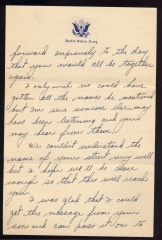 United States Navy
forward anxiously to the day
that you would all be together
again.
I only wish we could have
gotten all the names he mentioned
but I'm sure someone else may
have been listening and you'll
may hear from them.
We couldn't understand the
name of your street very well
but I hope we'll be close
enough so that this will reach
you.
I was glad that I could
get this message from your
son and can pass it on to